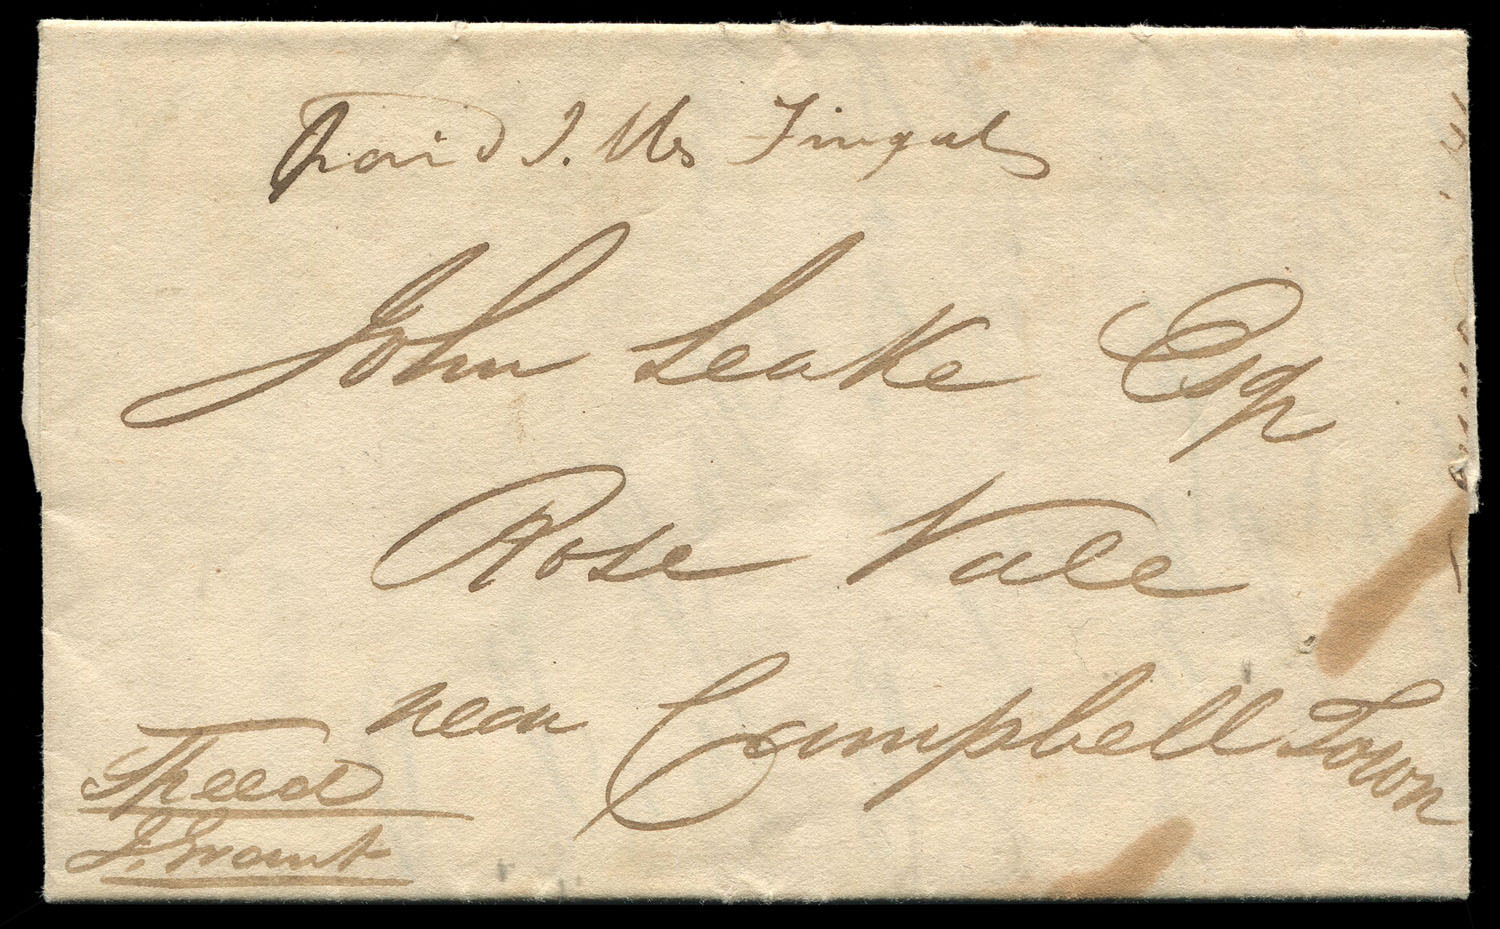 Paid J. Fingal
John Leake Esqr
Rose Vale
near Campbell Town
Speed
J. Grant